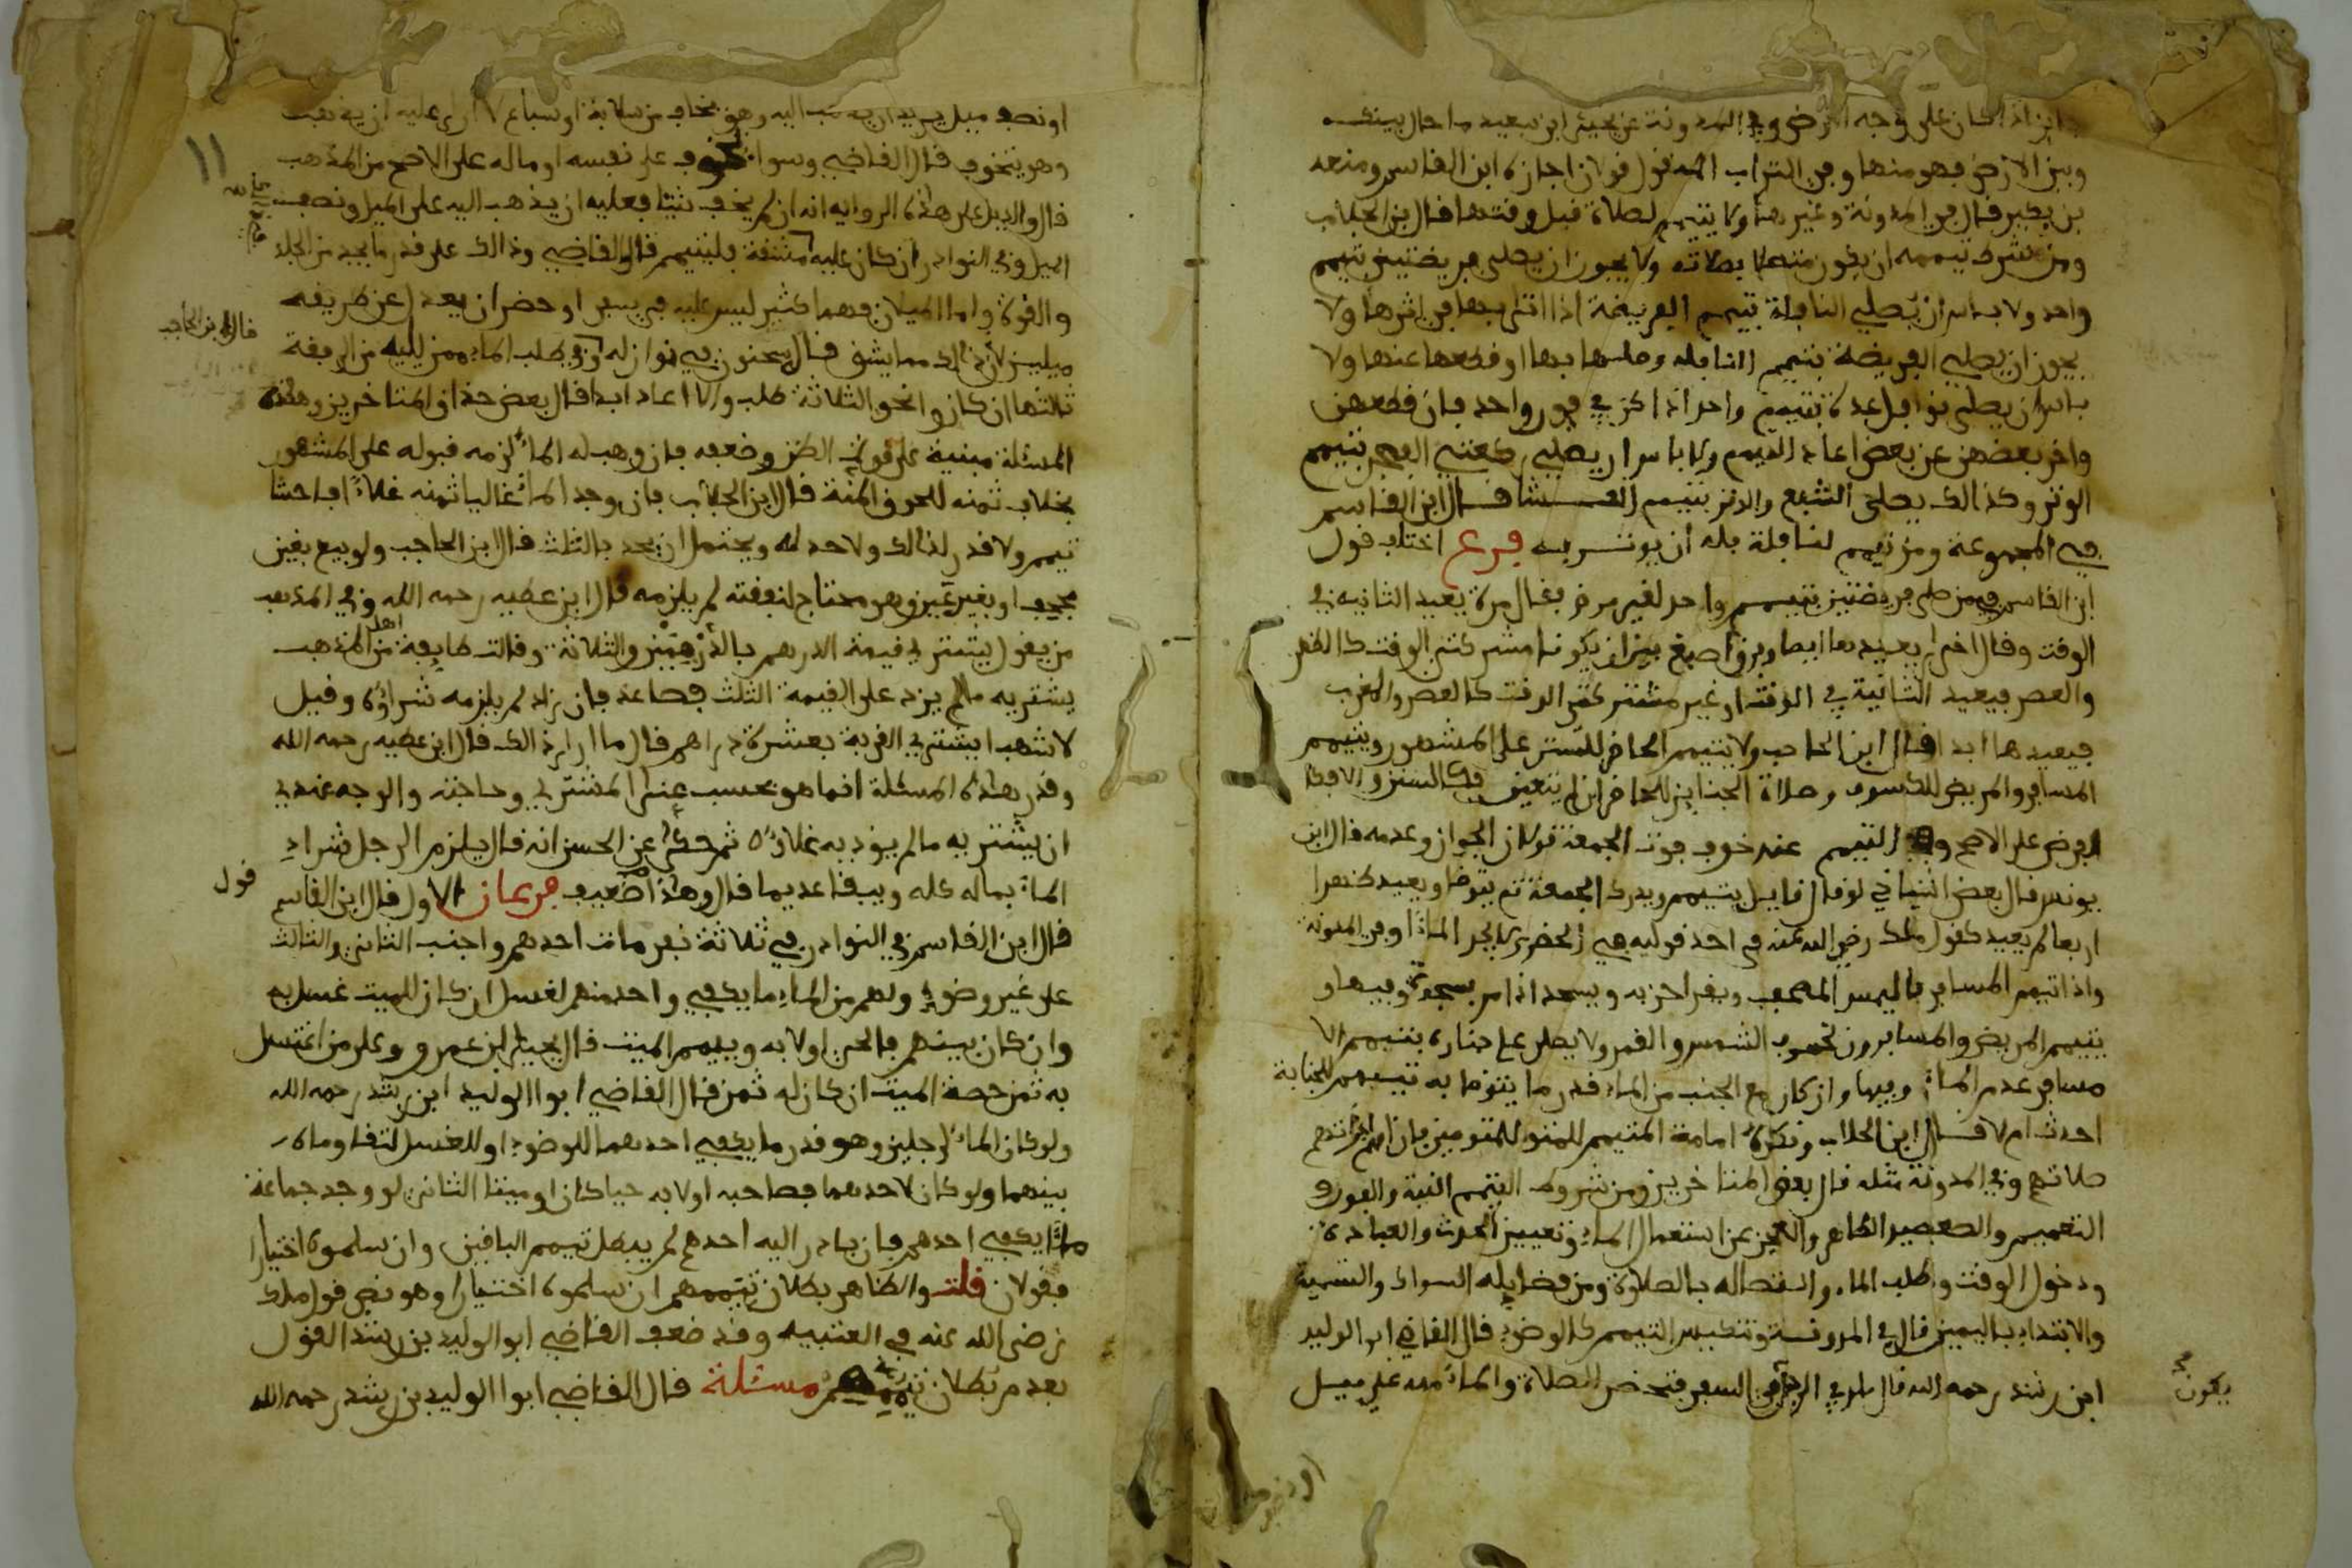 ابن زاد اذا كان على وجه الارض وفي المدونة عن يحيى ابن سعيد ما حال بينك
وبين الارض فهو منها وفي التراب المنقول قولان اجازه ابن القاسم ومنعه
بن بكير قال في المدونة وغيرها ولا يتيمم لصلاة قبل وقتها قال بن الجلاب
ومن شرط تيممه ان يكون متصلا بصلاته ولا يجوز ان يصلى فريضتين بتيمم
واحد ولا باس ان يصلي النافلة بتيمم الفريضة اذا اتى بها في اثرها ولا
يجوز ان يصلي الفريضة بتيمم النافلة وصلها بها او قطعها عنها ولا
باس ان يصلي نوافل عدة بتيمم واحد اذا كن في فور واحد فان قطعهن
واخر بعضهن عن بعض اعاد التيمم ولا باس ان يصلي ركعتي الفجر بتيمم
الوتر وكذالك يصلى الشفع والوتر بتيمم العشا قال ابن القاسم
في المجموعة ومن تيمم لنافلة فله ان يوتر به فرع اختلف قول
ابن القاسم فيمن صلى فريضتين بتيمم واحد لغير مرض فقال مرة يعيد الثانية في
الوقت وقال اخرى يعيدها ابدا وفرق اصبغ بين ان يكونا مشتركتي الوقت كالظهر
والعصر فيعيد الثانية في الوقت او غير مشتركتي الوقت كالعصر والمغرب
فيعيدها ابدا قال ابن الحاجب ولا يتيمم الحاضر للسنن على المشهور ويتيمم
المسافر والمريض للكسوف وصلاة الجنايز للحاضر ان لم يتعين كالسنن والا فكا
الفرض على الاصح وفي التيمم عند خوف فوت الجمعة قولان الجواز وعدمه قال ابن
يونس قال بعض اشياخي لو قال قايل يتيمم ويدرك الجمعة ثم يتوضا ويعيد ظهرا
اربعا لم يبعد كقول ملك رضي الله عنه في احد قوليه في الحضري لا يجد الماء وفي المدونة
واذا تيمم المسافر فاليمس المصحف ويقرا حزبه ويسجد اذا مر بسجدة وفيها و
يتيمم المريض والمسافرون لخسوف الشمس والقمر ولا يصلى على جنازة بتيمم الا
مسافر عدم الماء وفيها وان كان مع الجنب من الماء قدر ما يتوضا به تيمم للجنابة
احدث ام لا قال ابن الجلاب وتكره امامة المتيمم للمتوضيين فان امهم اجزاتهم
صلاتهم وفي المدونة مثله قال بعض المتاخرين ومن شروط التيمم النية والفور و
التعميم والصعيد الطاهر والعجز عن استعمال الماء وتعيين الحدث والعبادة
ودخول الوقت وطلب الماء واتصاله بالصلاة ومن فضايله السواك والتسمية
والابتداء باليمين قال في المدونة وتنكيس التيمم كالوضوء قال القاضي ابو الوليد
ابن رشد رحمه الله قال ملك في الرجل في السفر فتحضر الصلاة والماء منه على ميل
يكون
او نصف ميل يريد ان يذهب اليه وهو يخاف من سلابة او سباع لا ارى عليه ان يذهب
وهو يتخوف قال القاضي وسوا تخوف على نفسه او ماله على الاصح من المذهب
قال والدليل على هذه الرواية انه ان لم يخف شيئا فعليه ان يذهب اليه على الميل ونصف
الميل وفي النوادر ان كان عليه مشقة فليتيمم قال القاضي وذالك على قدر ما يجد من الجلد
والقوة واما الميلان فهما كثير ليس عليه في سفر او حضر ان يعدل عن طريقه
قال ابن الحاجب
ميلين لان ذالك مما يشق قال سحنون في نوازله وفي طلب الماء ممن يليه من الرفقة
ثالثها ان كانوا نحو الثلاثة طلب والا اعاد ابدا قال بعض حذاق المتاخرين وهذه
المسئلة مبنية على قوة الظن وضعفه فان وهب له الماء لزمه قبوله على المشهور
بخلاف ثمنه للحوق المنة قال ابن الجلاب فان وجد الماء غاليا ثمنه غلاء فاحشا
تيمم ولا قدر لذالك ولا حد له ويحتمل ان يحد بالثلث قال ابن الحاجب ولو بيع بغبن
مجحف او بغير غبن وهو محتاج لنفقته لم يلزمه قال ابن عطيه رحمه الله وفي المذهب
من يقول يشتري قيمة الدرهم بالدرهمين والثلاثة وقالت طايفة من اهل المذهب
يشتريه ما لم يزد على القيمة الثلث فصاعدا فان زاد لم يلزمه شراؤه وقيل
لاشهب ايشتري القربة بعشرة دراهم قال ما ارى ذالك قال ابن عطيه رحمه الله
وقدر هذه المسئلة انما هو بحسب غنى المشتري وحاجته والوجه عندي
ان يشتريه ما لم يوذ به غلاؤه ثم حكى عن الحسن انه قال يلزم الرجل شراء
الماء بماله كله ويبقا عديما قال وهذا ضعيف فرعان الاول قال ابن القاسم
قول
قال ابن القاسم في النوادر في ثلاثة نفر مات احدهم واجنب الثاني والثالث
على غير وضوء ولهم من الماء ما يكفي واحد منهم لغسل ان كان للميت غسل به
وان كان بينهم فالحي اولا به وييمم الميت قال يحيى ابن عمر و وعلى من اغتسل
به ثمن حصة الميت ان كان له ثمن قال القاضي ابوا الوليد ابن رشد رحمه الله
ولو كان الماء لرجلين وهو قدر ما يكفي احدهما للوضوء او للغسل لتقاوماه
بينهما ولو كان لاحدهما فصاحبه اولا به حيا كان او ميتا الثاني لو وجد جماعة
ماء يكفي احدهم فان بادر اليه احدهم لم يبطل تيمم الباقين وان سلموه اختيارا
فقولان قلت والظاهر بطلان تيممهم ان سلموه اختيارا وهو نص قول ملك
رضي الله عنه في العتبيه وقد ضعف القاضي ابو الوليد بن رشد القول
بعدم بطلان تيممهم مسئلة قال القاضي ابوا الوليد بن رشد رحمه الله